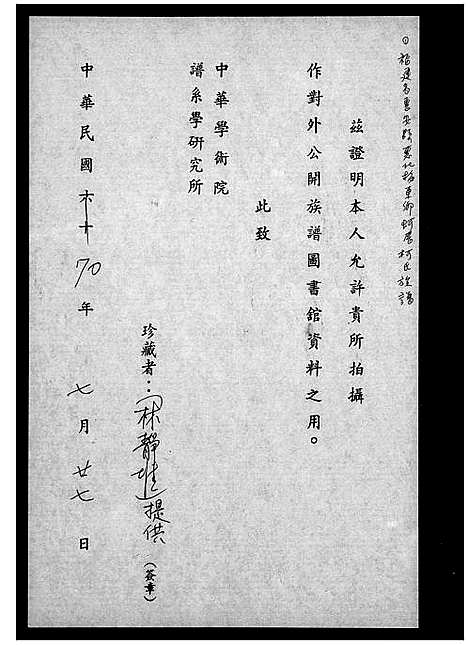 ①福建省惠安縣惠北埔車鄉蚵厝柯氏族譜
茲證明本人允許貴所拍攝
作對外公開族譜圖書館資料之用。
此致
中華學術院
譜系學研究所
珍藏者：林靜雄提供（簽章）
中華民國六十70年七月廿七日